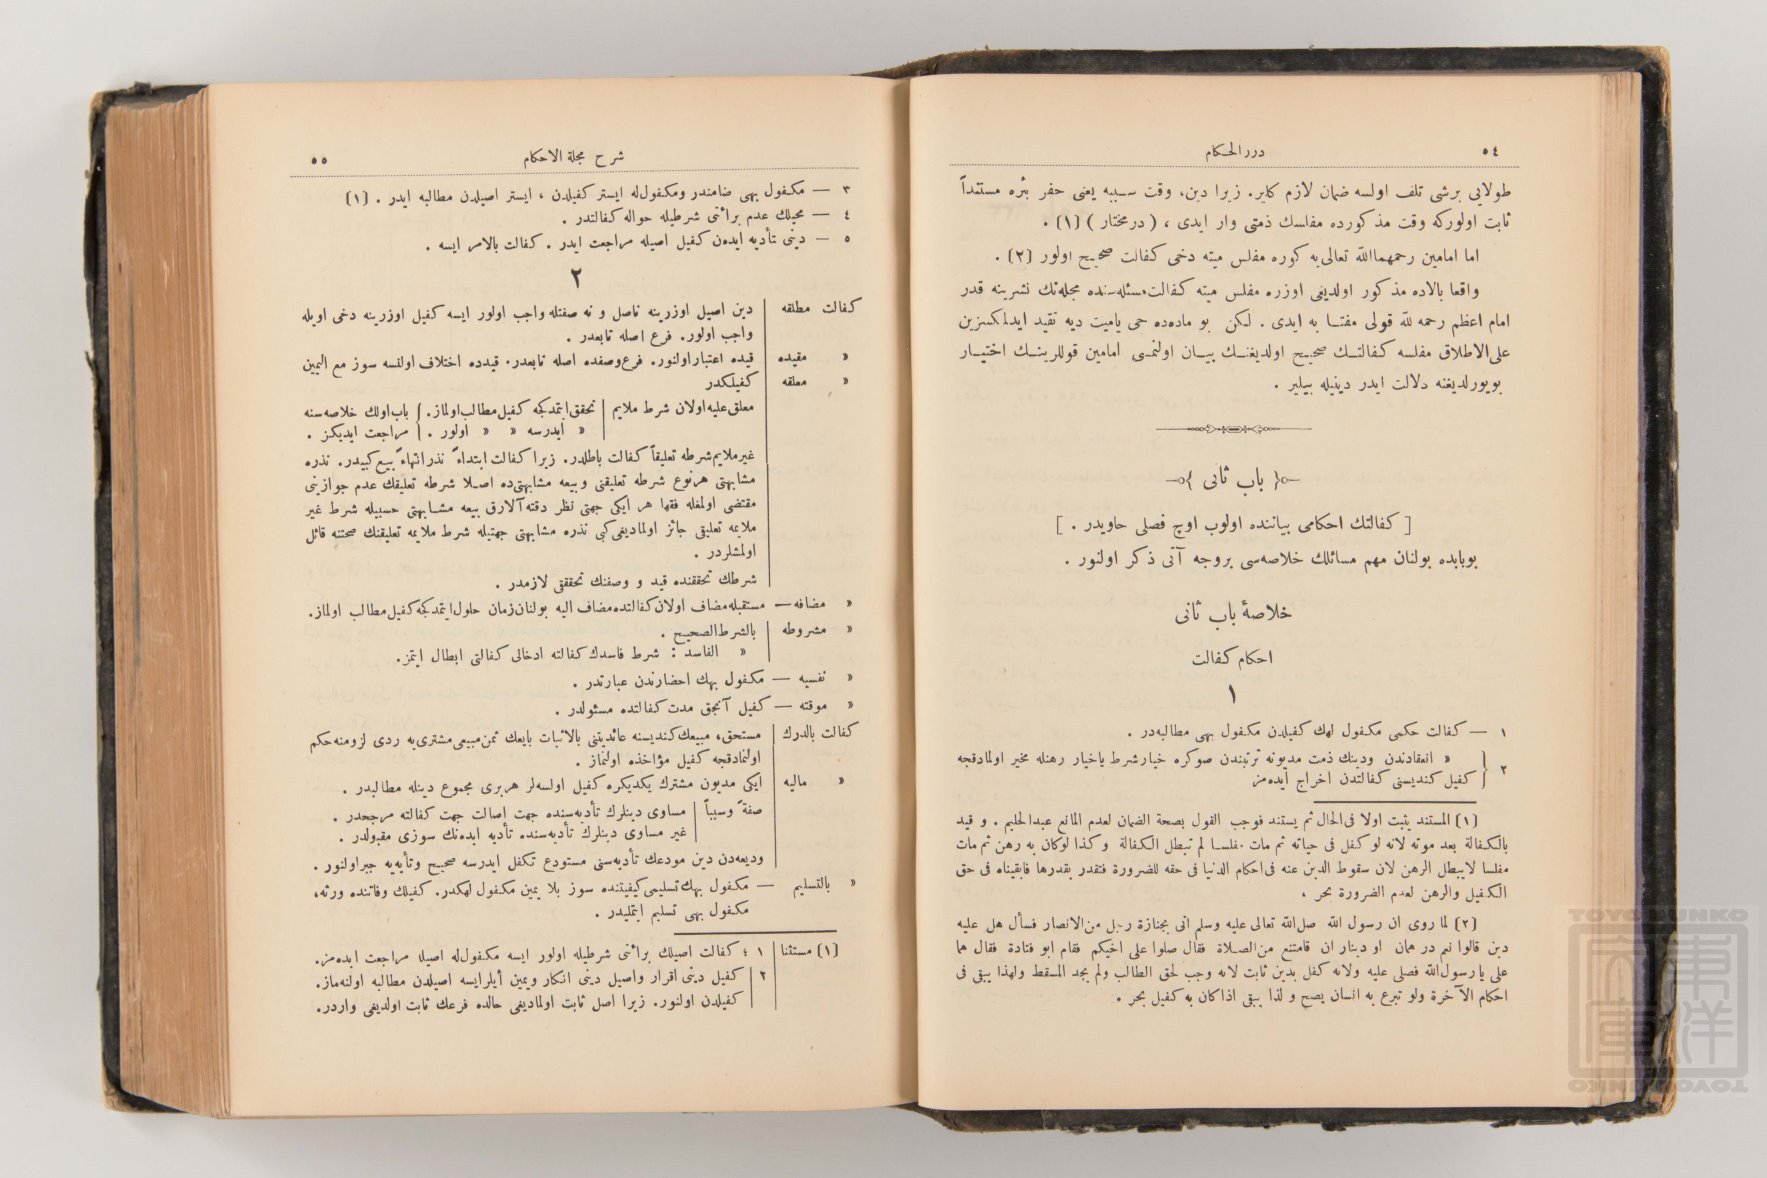 ٥٤
دررالحكام
طولايى برشى تلف اولسه ضمان لازم كلير. زيرا دين، وقت سببه يعنى حفر بئره مستنداً
ثابت اولوركه وقت مذكورده مفلسك ذمتى وار ايدى ، ( درمختار ) (١) .
اما امامين رحمهماالله تعالى‌يه كوره مفلس ميته دخى كفالت صحيح اولور (٢) .
واقعا بالاده مذكور اولديغى اوزره مفلس ميته كفالت مسئله‌سنده مجله‌نك نشرينه قدر
امام اعظم رحمه لله قولى مفتا به ايدى . لكن بو ماده‌ده حى ياميت ديه تقيد ايدلمكسزين
على‌الاطلاق مفلسه كفالتك صحيح اولديغنك بيان اولنمسى امامين قوللرينك اختيار
بويورلديغنه دلالت ايدر دينيله بيلير .
باب ثانى
[ كفالتك احكامى بياننده اولوب اوچ فصلى حاويدر . ]
بوبابده بولنان مهم مسائلك خلاصه‌سى بروجه آتى ذكر اولنور .
خلاصۀ باب ثانى
احكام كفالت
١
١ — كفالت حكمى مكفول لهك كفيلدن مكفول بهى مطالبه‌در .
٢ { » انعقادندن ودينك ذمت مديونه ترتبندن صوكره خيارشرط ياخيار رهنله مخير اولمادقجه
كفيل كنديسنى كفالتدن اخراج ايده‌مز
(١) المستند يثبت اولا فى‌الحال ثم يستند فوجب القول بصحة الضمان لعدم المانع عبدالحليم . و قيد
بالكفالة بعد موته لانه لو كفل فى حياته ثم مات مفلسا لم تبطل الكفالة و كذا لوكان به رهن ثم مات
مفلسا لايبطل الرهن لان سقوط الدين عنه فى احكام الدنيا فى حقه للضرورة فتقدر بقدرها فابقيناه فى حق
الكفيل والرهن لعدم الضرورة بحر .
(٢) لما روى ان رسول الله صلى‌الله تعالى عليه وسلم اتى بجنازة رجل من‌الانصار فسأل هل عليه
دين قالوا نعم درهمان او دينار ان فامتنع من‌الصلاة فقال صلوا على اخيكم فقام ابو قتادة فقال هما
على يا رسول‌الله فصلى عليه ولانه كفل بدين ثابت لانه وجب لحق الطالب ولم يجد المسقط ولهذا يبقى فى
احكام الآخرة ولو تبرع به انسان يصح و لذا يبقى اذا كان به كفيل بحر .
شرح مجلة الاحكام
٥٥
٣ — مكفول بهى ضامندر ومكفول‌له ايستر كفيلدن ، ايستر اصيلدن مطالبه ايدر . (١)
٤ — محيلك عدم برائتى شرطيله حواله كفالتدر .
٥ — دينى تأديه ايده‌ن كفيل اصيله مراجعت ايدر . كفالت بالامر ايسه .
٢
كفالت مطلقه | دين اصيل اوزرينه ناصل و نه صفتله واجب اولور ايسه كفيل اوزرينه دخى اويله
واجب اولور. فرع اصله تابعدر .
» مقيده | قيده اعتبار اولنور. فرع وصفده اصله تابعدر. قيدده اختلاف اولنسه سوز مع اليمين
» معلقه | كفيلكدر
معلق عليه اولان شرط ملايم | تحقق ايتمدكجه كفيل مطالب اولماز. } باب اولك خلاصه‌سنه
» ايدرسه » » اولور . } مراجعت ايديكز .
غير ملايم شرطه تعليقاً كفالت باطلدر. زيرا كفالت ابتداءً نذر انتهاءً بيع كبيدر. نذره
مشابهتى هرنوع شرطه تعليقنى وبيعه مشابهتى‌ده اصلا شرطه تعليقك عدم جوازينى
مقتضى اولمغله فقها هر ايكى جهتى نظر دقته آلارق بيعه مشابهتى حسبيله شرط غير
ملايمه تعليقى جائز اولماديغى كبى نذره مشابهتى جهتيله شرط ملايمه تعليقنك صحتنه قائل
اولمشلردر .
شرطك تحققنده قيد و وصفنك تحققى لازمدر .
» مضافه — مستقبله مضاف اولان كفالتده مضاف اليه بولنان زمان حلول ايتمدكجه كفيل مطالب اولماز.
» مشروطه | بالشرط الصحيح .
» الفاسد : شرط فاسدك كفالته ادخالى كفالتى ابطال ايتمز.
» نفسيه — مكفول بهك احضارندن عبارتدر .
» موقته — كفيل آنجق مدت كفالتده مسئولدر .
كفالت بالدرك | مستحق، مبيعك كنديسنه عائديتنى بالاثبات بايعك ثمن مبيعى مشترى‌يه ردى لزومنه حكم
اولنمادقجه كفيل مؤاخذه اولنماز .
» ماليه | ايكى مديون مشترك يكديكره كفيل اولسه‌لر هربرى مجموع دينله مطالبدر .
صفةً وسبباً | مساوى دينلرك تأديه‌سنده جهت اصالت جهت كفالته مرجحدر .
غير مساوى دينلرك تأديه‌سنده تأديه ايده‌نك سوزى مقبولدر .
وديعه‌دن دين مودعك تأديه‌سنى مستودع تكفل ايدرسه صحيح وتأيه‌يه جبر اولنور .
» بالتسليم — مكفول بهك تسليمى كيفيتنده سوز بلا يمين مكفول لهكدر. كفيلك وفاتنده ورثه،
مكفول بهى تسليم ايتمليدر .
(١) مستثنا | ١ ؛ كفالت اصيلك برائتى شرطيله اولور ايسه مكفول‌له اصيله مراجعت ايده‌مز.
٢ | كفيل دينى اقرار واصيل دينى انكار ويمين أيلرايسه اصيلدن مطالبه اولنه‌ماز.
كفيلدن اولنور. زيرا اصل ثابت اولماديغى حالده فرعك ثابت اولديغى واردر.
TOYO BUNKO
東洋文庫
TOYO BUNKO